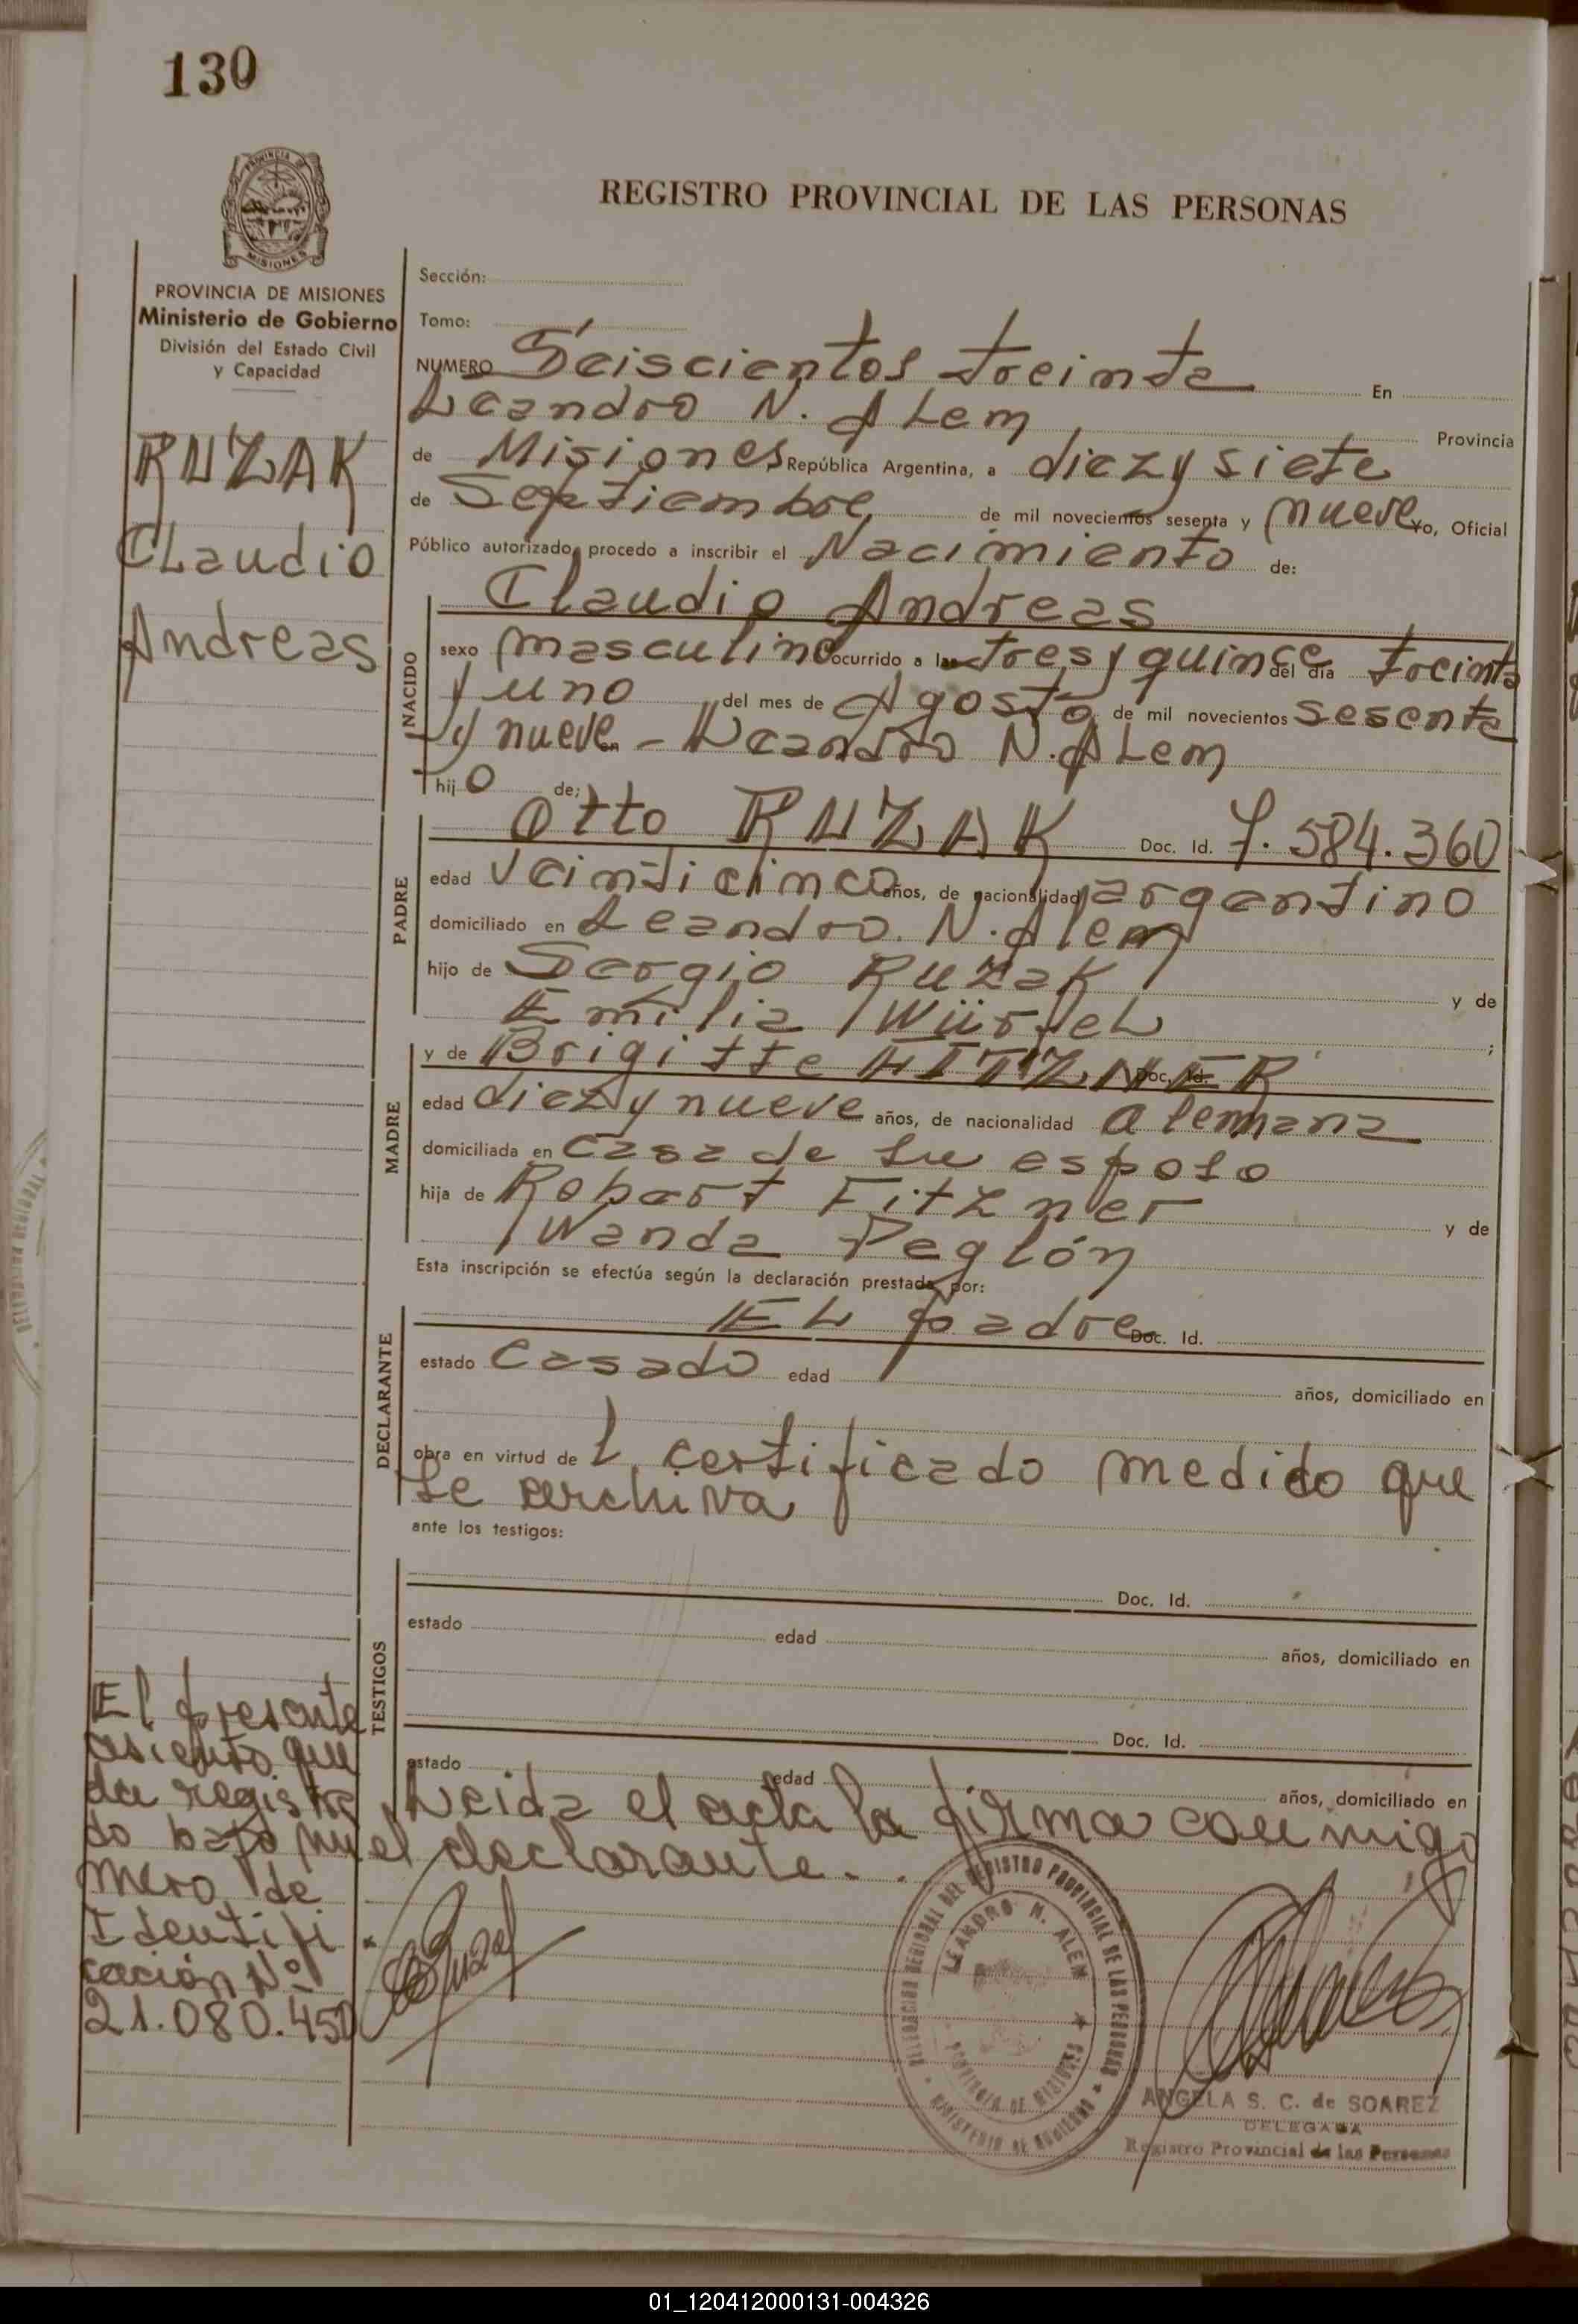 130
PROVINCIA DE
MISIONES
REGISTRO PROVINCIAL DE LAS PERSONAS
PROVINCIA DE MISIONES
Ministerio de Gobierno
División del Estado Civil
y Capacidad
RUZAK
Claudio
Andreas
Sección:
Tomo:
NUMERO Seiscientos treinta En
Leandro N. ALem Provincia
de Misiones República Argentina, a diez y siete
de Septiembre de mil novecientos sesenta y nueve Yo, Oficial
Público autorizado, procedo a inscribir el Nacimiento de:
NACIDO
Claudio Andreas
sexo masculino ocurrido a las tres y quince del día treinta
y uno del mes de Agosto de mil novecientos sesenta
y nueve en - Leandro N. ALem
hij o de:
PADRE
Otto RUZAK Doc. Id. 7.584.360
edad veinticinco años, de nacionalidad argentino
domiciliado en Leandro. N. Alem
hijo de Sergio Ruzak y de
Emilia Würfel ;
MADRE
y de Brigitte HITZNER Doc. Id.
edad diez y nueve años, de nacionalidad alemana
domiciliada en casa de su esposo
hija de Robert Fitzner y de
Wanda Peglón
Esta inscripción se efectúa según la declaración prestada por:
DECLARANTE
EL padre Doc. Id.
estado casado edad años, domiciliado en
obra en virtud de l certificado medido que
se archiva
ante los testigos:
TESTIGOS
Doc. Id.
estado edad años, domiciliado en
Doc. Id.
estado edad años, domiciliado en
Leida el acta la firma conmigo
el declarante.
El presente
asiento que
da registra
do bajo nu
mero de
Identifi
cación Nº
21.080.450
DELEGACION REGIONAL DEL REGISTRO PROVINCIAL DE LAS PERSONAS
LEANDRO N. ALEM
PROVINCIA DE MISIONES
MINISTERIO DE GOBIERNO
ANGELA S. C. de SOAREZ
DELEGADA
Registro Provincial de las Personas
01_120412000131-004326